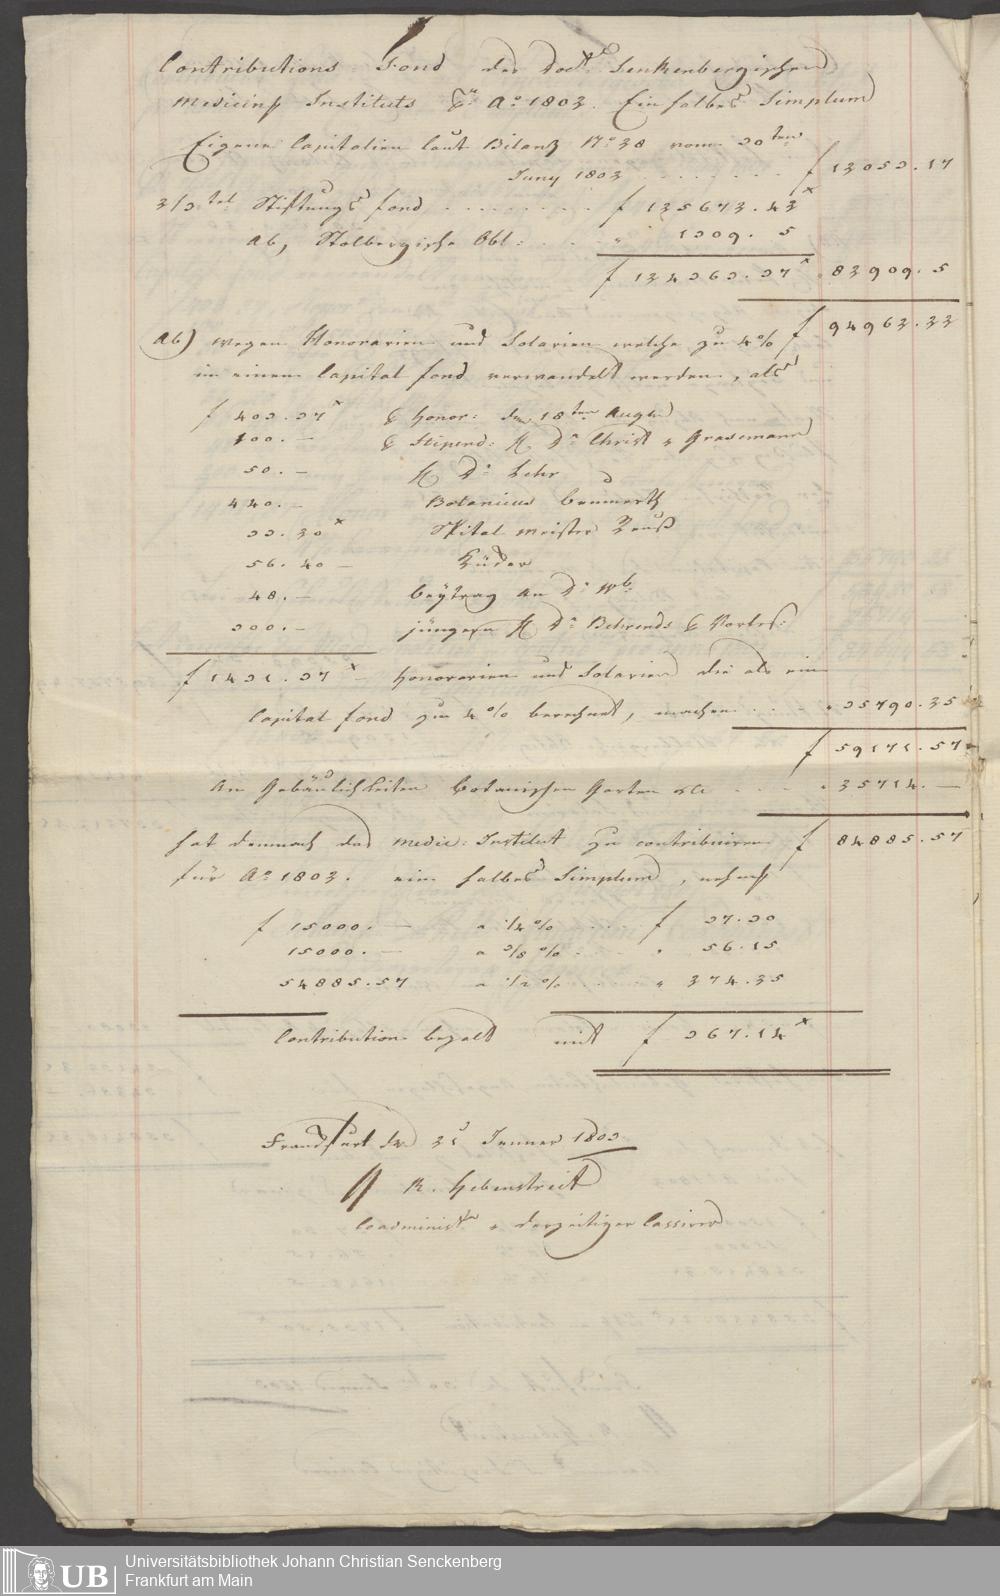 Contributions Fond des Doct Senkenbergischen
Medicins Instituts Ao 1802. Ein halbes Simplum
Eigene Capitalien laut Bilanz No 28 vom 30ten
Juny 1802 ........ f 12053.17
2/3tel Stiftungs fond ........ f 125672.42x
Ab, Stolbergische Obl: .... " 1309. 5
f 124363.37x " 82909. 5
f 94962.22
Ab) wegen Honorarien und Solarien welche zu 4%
in einen Capital fond verwandelt werden, als
f 403.37x Honor: den 18ten Augt
100.— Stipend: H. Dr Christ & Grasemann
50.— H Dr Lehr
440.— Botanicus Baumerth
33.20x Spital meister Reuß
56.40— Küder
48.— Beÿtrag an Dr Wb.
300.— jüngern H Dr Behrends Vorles:
f 1431.37x — Honorarien und Solarien die als ein
Capital fond zu 4% berechnet, machen .... " 35790.25
f 59171.57
An Gebäulichkeiten botanischen Garten &c .... " 25714.—
hat demnach das medic: Institut zu contribuiren f 84885.57
für Ao 1802. ein halbes Simplum, nehmlich
f 15000.— a 1/4% .... f 37.30
15000.— a 3/8% .... " 56.15
54885.57 a 1/2% .... " 274.25
Contribution bezalt mit f 367.14x
Frankfurt den 21 Jenner 1803
R. Hebenstreit
Coadminist & derzeitiger Cassirer
Universitätsbibliothek Johann Christian Senckenberg
UB Frankfurt am Main